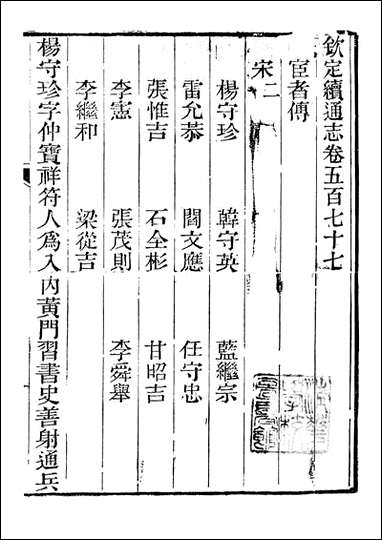 欽定續通志卷五百七十七
宦者傳
宋二
楊守珍 韓守英 藍繼宗
雷允恭 閻文應 任守忠
張惟吉 石全彬 甘昭吉
李憲 張茂則 李舜舉
李繼和 梁從吉
楊守珍字仲寶祥符人爲入內黃門習書史善射通兵